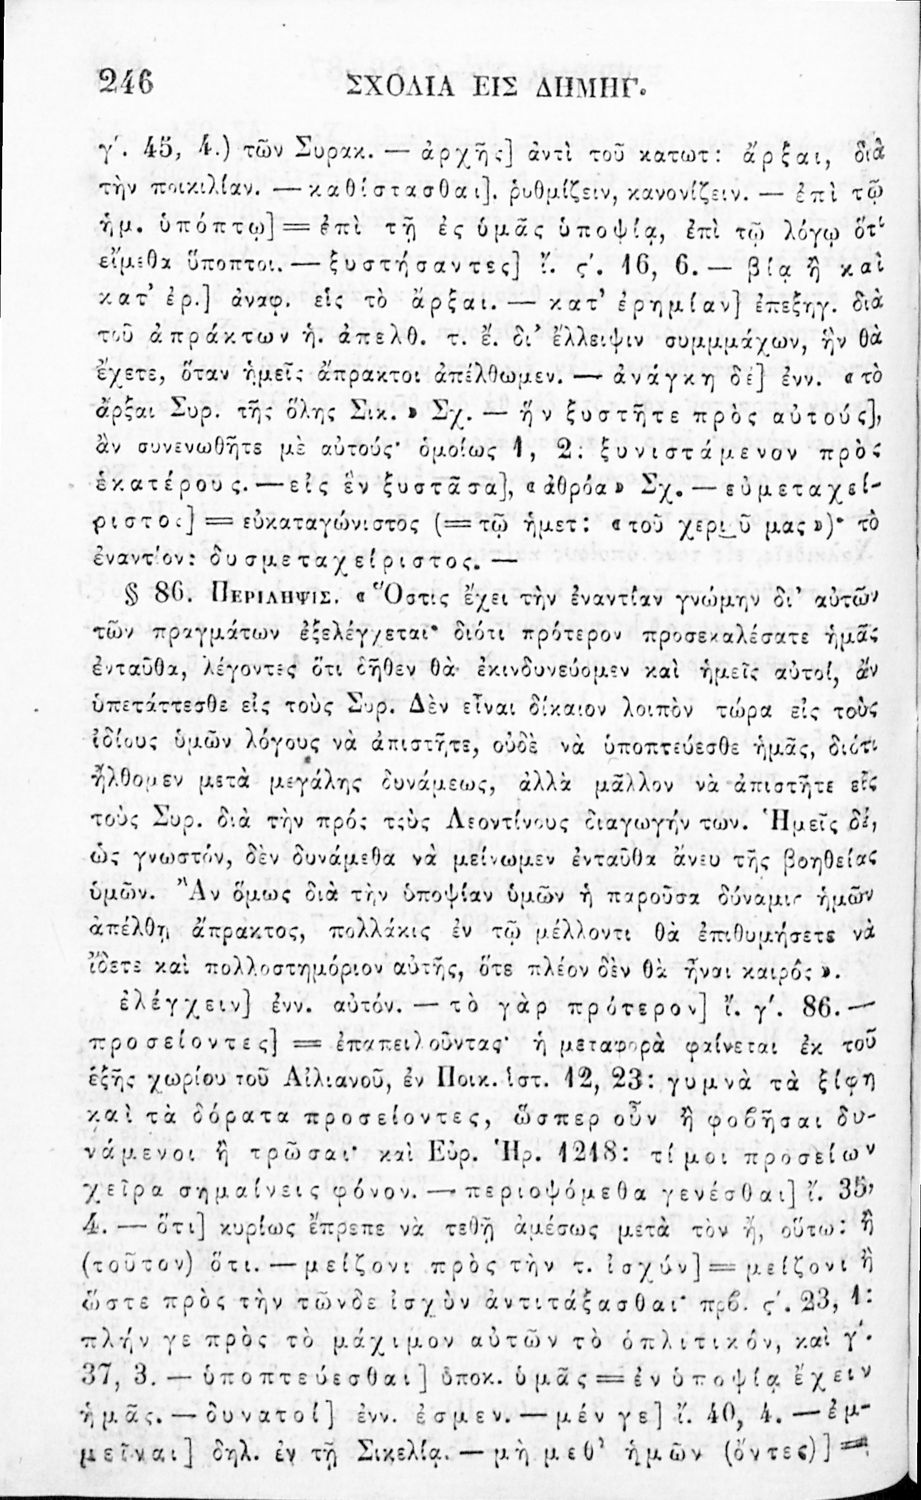 246 ΣΧΟΛΙΑ ΕΙΣ ΔΗΜΗΓ.
γ'. 45, 4.) τῶν Συρακ. — ἀρχῆς] ἀντὶ τοῦ κατωτ: ἄρξαι, διὰ
τὴν ποικιλίαν. — καθίστασθαι]. ῥυθμίζειν, κανονίζειν. — ἐπὶ τῷ
ἡμ. ὑπόπτῳ] = ἐπὶ τῇ ἐς ὑμᾶς ὑποψίᾳ, ἐπὶ τῷ λόγῳ ὅτι
εἴμεθα ὕποπτοι. — ξυστήσαντες] ἴ. ς'. 16, 6. — βίᾳ ἢ καὶ
κατ' ἐρ.] ἀναφ. εἰς τὸ ἄρξαι. — κατ' ἐρημίαν] ἐπεξηγ. διὰ
τοῦ ἀπράκτων ἡ. ἀπελθ. τ. ἔ. δι' ἔλλειψιν συμμμάχων, ἣν θὰ
ἔχετε, ὅταν ἡμεῖς ἄπρακτοι ἀπέλθωμεν. — ἀνάγκη δὲ] ἐνν. «τὸ
ἄρξαι Συρ. τῆς ὅλης Σικ.» Σχ. — ἢν ξυστῆτε πρὸς αὐτούς],
ἂν συνενωθῆτε μὲ αὐτούς· ὁμοίως 1, 2: ξυνιστάμενον πρὸς
ἑκατέρους. — εἰς ἓν ξυστᾶσα], «ἀθρόα» Σχ. — εὐμεταχεί-
ριστος] = εὐκαταγώνιστος (= τῷ ἡμετ: «τοῦ χεριοῦ μας»)· τὸ
ἐναντίον: δυσμεταχείριστος. —
§ 86. ΠΕΡΙΛΗΨΙΣ. «Ὅστις ἔχει τὴν ἐναντίαν γνώμην δι' αὐτῶν
τῶν πραγμάτων ἐξελέγχεται· διότι πρότερον προσεκαλέσατε ἡμᾶς
ἐνταῦθα, λέγοντες ὅτι δῆθεν θὰ ἐκινδυνεύομεν καὶ ἡμεῖς αὐτοί, ἂν
ὑπετάττεσθε εἰς τοὺς Συρ. Δὲν εἶναι δίκαιον λοιπὸν τώρα εἰς τοὺς
ἰδίους ὑμῶν λόγους νὰ ἀπιστῆτε, οὐδὲ νὰ ὑποπτεύεσθε ἡμᾶς, διότι
ἤλθομεν μετὰ μεγάλης δυνάμεως, ἀλλὰ μᾶλλον νὰ ἀπιστῆτε εἰς
τοὺς Συρ. διὰ τὴν πρός τοὺς Λεοντίνους διαγωγήν των. Ἡμεῖς δέ,
ὡς γνωστόν, δὲν δυνάμεθα νὰ μείνωμεν ἐνταῦθα ἄνευ τῆς βοηθείας
ὑμῶν. Ἂν ὅμως διὰ τὴν ὑποψίαν ὑμῶν ἡ παροῦσα δύναμις ἡμῶν
ἀπέλθῃ ἄπρακτος, πολλάκις ἐν τῷ μέλλοντι θὰ ἐπιθυμήσετε νὰ
ἴδετε καὶ πολλοστημόριον αὐτῆς, ὅτε πλέον δὲν θὰ ἦναι καιρός».
ἐλέγχειν] ἐνν. αὐτόν. — τὸ γὰρ πρότερον] ἴ. γ'. 86. —
προσείοντες] = ἐπαπειλοῦντας· ἡ μεταφορὰ φαίνεται ἐκ τοῦ
ἑξῆς χωρίου τοῦ Αἰλιανοῦ, ἐν Ποικ. ἱστ. 12, 23: γυμνὰ τὰ ξίφη
καὶ τὰ δόρατα προσείοντες, ὥσπερ οὖν ἢ φοβῆσαι δυ-
νάμενοι ἢ τρῶσαι· καὶ Εὐρ. Ἡρ. 1218: τί μοι προσείων
χεῖρα σημαίνεις φόνον. — περιοψόμεθα γενέσθαι] ἴ. 35,
4. — ὅτι] κυρίως ἔπρεπε νὰ τεθῇ ἀμέσως μετὰ τὸν ἤ, οὕτω: ἢ
(τοῦτον) ὅτι. — μείζονι πρὸς τὴν τ. ἰσχύν] = μείζονι ἢ
ὥστε πρὸς τὴν τῶνδε ἰσχὺν ἀντιτάξασθαι· πρβ. ς'. 23, 1:
πλήν γε πρὸς τὸ μάχιμον αὐτῶν τὸ ὁπλιτικόν, καὶ γ'.
37, 3. — ὑποπτεύεσθαι] ὑποκ. ὑμᾶς = ἐν ὑποψίᾳ ἔχειν
ἡμᾶς. — δυνατοί] ἐνν. ἐσμεν. — μέν γε] ἴ. 40, 4. — ἐμ-
μεῖναι] δηλ. ἐν τῇ Σικελίᾳ. — μὴ μεθ' ἡμῶν (ὄντες)] =